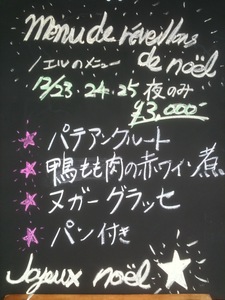 Menu de réveillons
de noël
ノエルのメニュー
12/23 24.25 夜のみ
¥3,000-
★ パテアンクルート
★ 鴨もも肉の赤ワイン煮
★ ヌガーグラッセ
★ パン付き
Joyeux noël ★